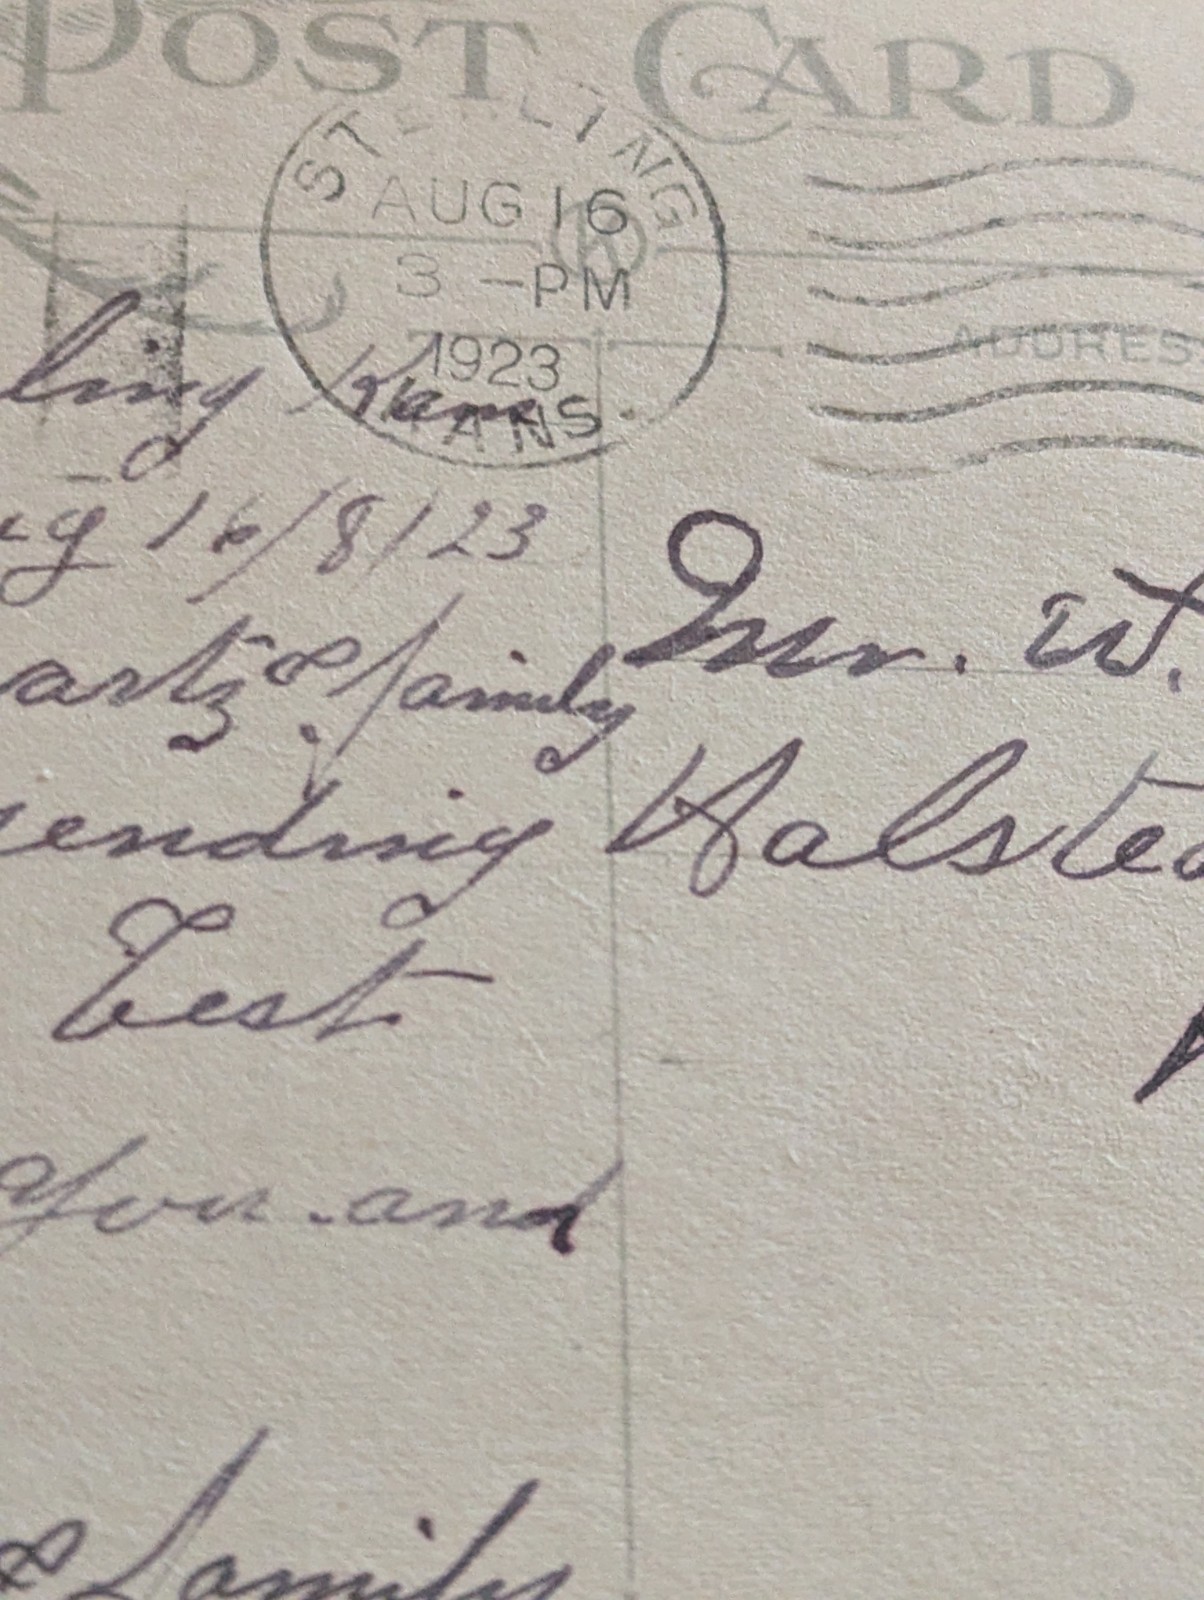 POST CARD
STERLING
AUG 16
3 -PM
1923
KANS.
ADDRES
ling Kans
ug 16/8/23
artz & family
ending
best
you and
& family
Mr. W.
Halstea